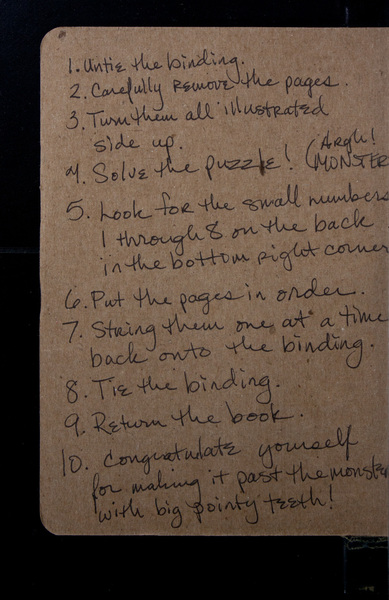 1. Untie the binding.
2. Carefully remove the pages.
3. Turn them all illustrated
side up.
4. Solve the puzzle! (Argh!
MONSTER
5. Look for the small numbers
1 through 8 on the back
in the bottom right corner
6. Put the pages in order.
7. String them one at a time
back onto the binding.
8. Tie the binding.
9. Return the book.
10. Congratulate yourself
for making it past the monste
with big pointy teeth!